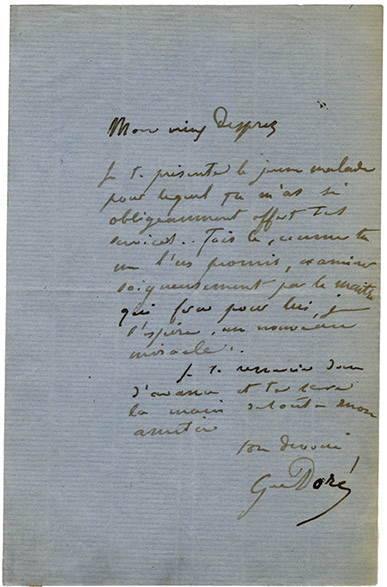 Mon vieux Desprez
Je te présente le jeune malade
pour lequel tu m'as si
obligeamment offert tes
services.. Fais le, comme tu
me l'as promis, examiner
soigneusement par le maitre
qui fera pour lui, je
l'espère, un nouveau
miracle..
Je te remercie donc
d'avance et te serre
la main de toute mon
amitié
ton dévoué
Gve Doré